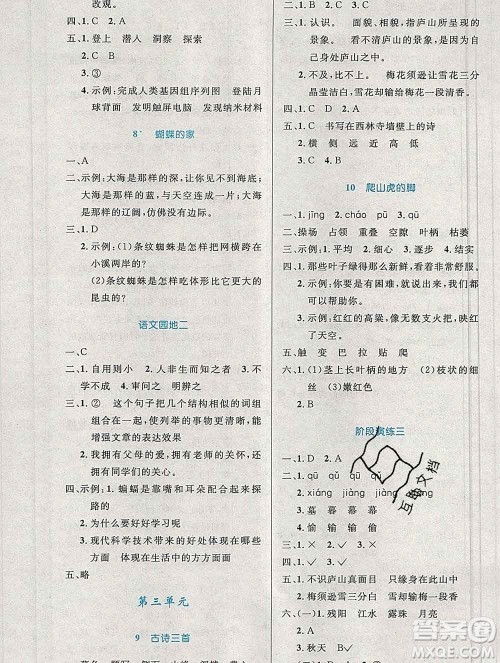 四、1. C　2. A
五、1. 登上　潜入　洞察　探索
2. C　B
3. ③
4. 示例：完成人类基因组序列图　登陆月
球背面　发明触屏电脑　发现纳米材料
8*　蝴蝶的家
一、A
二、示例：大海是那样的深，让鱼儿无忧无虑；
大海是那样的蓝，与天空连成一片；大海
是那样的辽阔，仿佛没有边际。
三、1. B
2. 示例：(1)条纹蜘蛛怎样把网横跨在
小溪两岸的？
(2)条纹蜘蛛是怎么吃体形比它大的
昆虫的？
语文园地二
一、C
二、1. 自用则小　2. 人非生而知之者　3. 不
学不成　4. 审问之　明辨之
三、1. 示例：②　这个句子把几个结构相似的词组
组合在一起，使列举的事物更丰富，能
增强文章的表达效果
2. 我拥有父母的爱，拥有老师的关怀，还
拥有同学们的关心。
四、示例：1. 蝙蝠是靠嘴和耳朵配合起来探
路的
2. 为什么要好好学习呢？
3. 现代科学技术带来的好处体现在哪些
方面　体现在生活中的方方面面
五、略
第三单元
9　古诗三首
二、1. 认识。　面貌，相貌　庐山所呈现的
景象。　看不清庐山的景象，是因为自己
处在庐山之中。
2. 不及，比不上。　梅花须逊让雪花三分
晶莹洁白，雪花却输给梅花一段清香。
四、1. C　D　2. A
五、1. C　书写在西林寺墙壁上的诗
2. 横　侧　远　近　高　低
3. B
10　爬山虎的脚
一、1. jīng　2. cháo　pū
二、操场　占领　重叠　空隙　叶柄　枯萎
三、示例：1. 平均　2. 细心　3. 逐步　4. 痕迹
四、1. 那些叶子绿得那么新鲜，看着非常舒服。
2. 示例：我们遇到困难，要想办法解决，
困难就没什么了不起的。
3. 示例：红红的高粱，像无数燃烧的火
把，映红了天空。
五、触　变　巴　拉　贴　爬
六、(一)(1)茎上长叶柄的地方　(2)枝状的细
丝　(3)嫩红色
阶段演练三
一、1. D　2. A　3. C　4. B
二、1. qū　qǔ　qū　qǔ
2. xiáng　jiàng　xiáng　jiàng
三、1. 墓　暮　幕　慕
2. 偷　输　愉　榆
四、1. ×　2. ✓　3. ✓
五、1. 不识庐山真面目　只缘身在此山中
2. 梅须逊雪三分白　雪却输梅一段香
六、(一)1. 残阳　江水　露珠　月亮
2. ✓
3. 秋天　✓
互动文档
答案